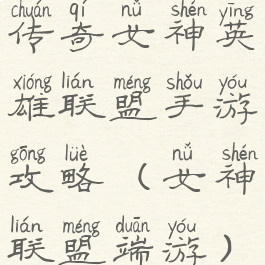 chuán qí nǚ shén yīng
传奇女神英
xióng lián méng shǒu yóu
雄联盟手游
gōng lüè nǚ shén
攻略（女神
lián méng duān yóu
联盟端游）